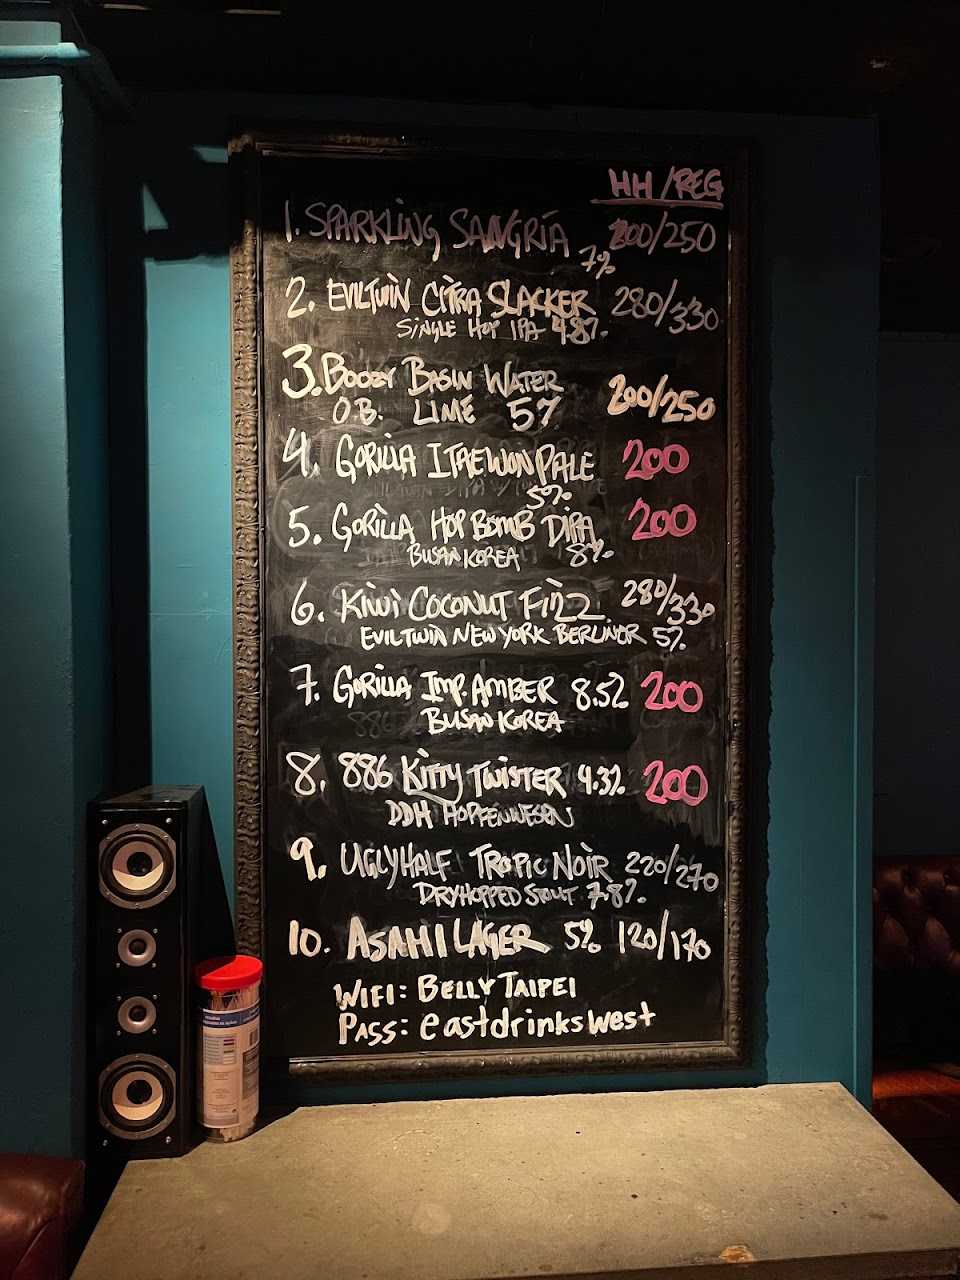 HH/REG
1. SPARKLING SANGRIA 200/250
7%
2. EVILTWIN CITRA SLACKER 280/330
SINGLE HOP IPA 4.8%
3. BOOZY BASIN WATER
O.B. LIME 5% 200/250
4. GORILLA ITAEWON PALE 200
5%
5. GORILLA HOP BOMB DIPA 200
BUSAN KOREA 8%
6. KIWI COCONUT FIZZ 280/330
EVILTWIN NEW YORK BERLINER 5%
7. GORILLA IMP. AMBER 8.5% 200
BUSAN KOREA
8. 886 KITTY TWISTER 4.3% 200
DDH HOPFENWEISEN
9. UGLYHALF TROPIC NOIR 220/270
DRYHOPPED STOUT 7.8%
10. ASAHI LAGER 5% 120/170
WIFI: BELLY TAIPEI
PASS: eastdrinkswest